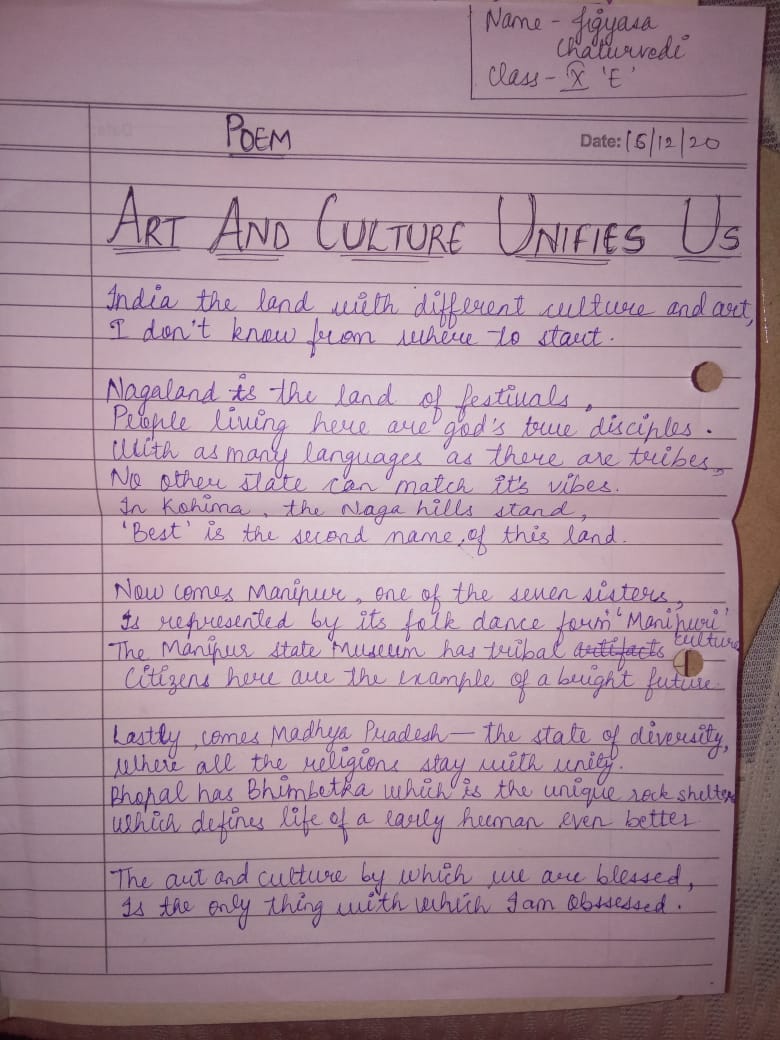 Name - Jigyasa
Chaturvedi
Class - X 'E'
POEM
Date: 15/12/20
ART AND CULTURE UNIFIES US
India the land with different culture and art,
I don't know from where to start.
Nagaland is the land of festivals,
People living here are god's true disciples.
With as many languages as there are tribes,
No other state can match it's vibes.
In Kohima, the Naga hills stand,
'Best' is the second name, of this land.
Now comes Manipur, one of the seven sisters,
Is represented by its folk dance form 'Manipuri'
The Manipur state Museum has tribal artifacts culture
Citizens here are the example of a bright future.
Lastly, comes Madhya Pradesh — the state of diversity,
Where all the religions stay with unity.
Bhopal has Bhimbetka which is the unique rock shelter
which defines life of a early human even better
The art and culture by which we are blessed,
Is the only thing with which I am obssessed.